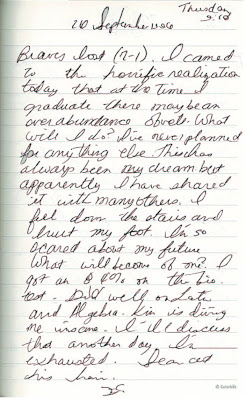 Thursday
9:10
20 September
Braves lost (7-1). I came
to the horrific realization
today that at the time I
graduate there may be an
over abundance of vets. What
will I do? I've never planned
for anything else. This has
always been my dream but
apparently I have shared
it with many others. I
fell down the stairs and
hurt my foot. I'm so
scared about my future
What will become of me? I
got an B % on the bio.
test. Did well on Latin
and Algebra. is driving
me insane. I'll discuss
that another day. I'm
exhausted. Sean cut
his hair.